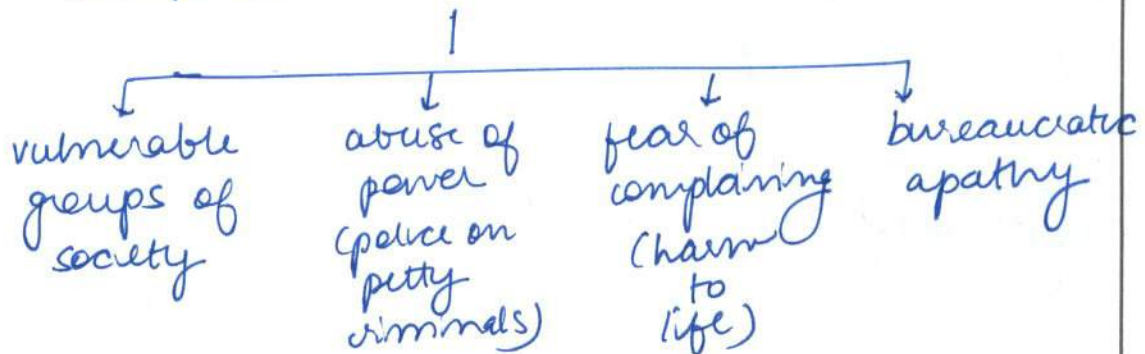 vulnerable
groups of
society
abuse of
power
(police on
petty
criminals)
fear of
complaining
(harm
to
life)
bureaucratic
apathy